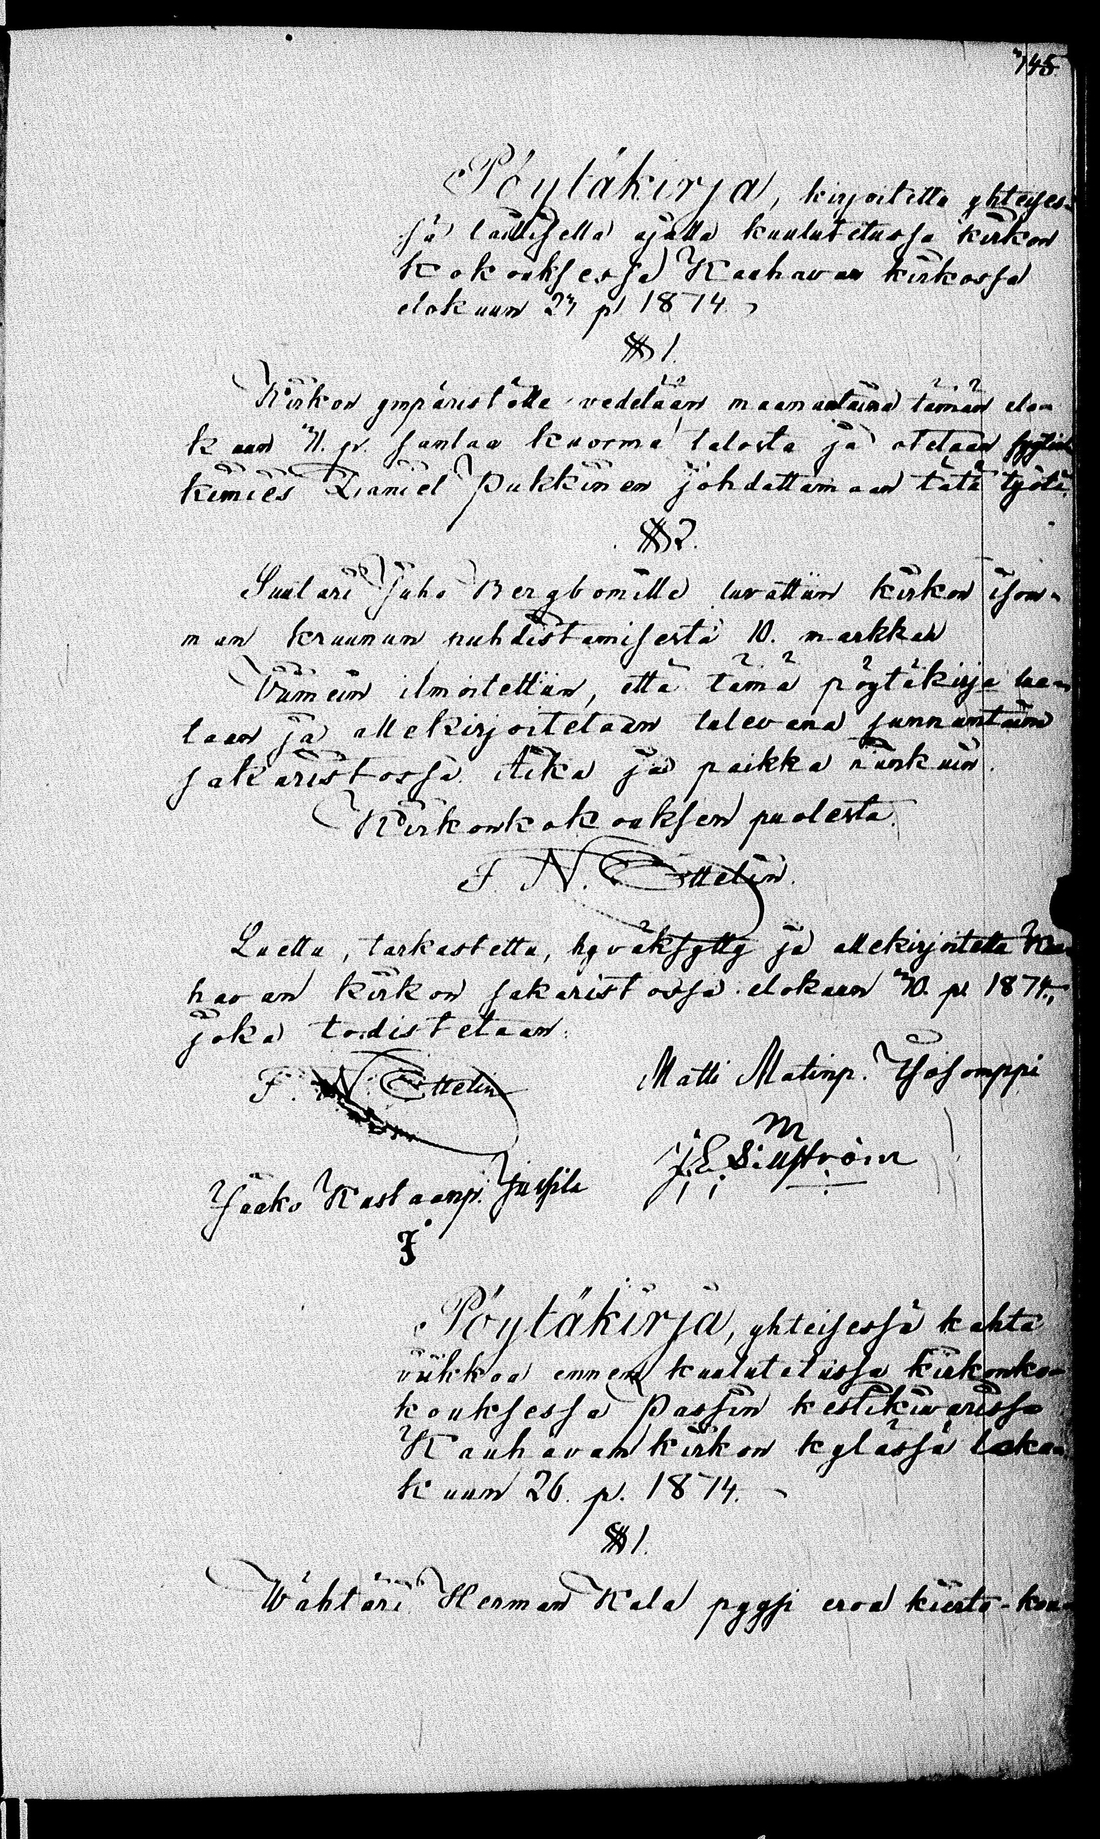 345.
Pöytäkirja, kirjoitettu yhteises-
sä laillisella ajalla kuulutetussa kirkon
kokouksessa Kauhavan kirkossa
elokuun 23 p. 1874.
§ 1.
Kirkon ympäristölle vedetään maanantaina tämän elo-
kuun 31. p. santaa kuorma talosta ja otetaan
kimies Daniel Pukkinen johdattamaan tätä työtä.
§ 2.
Suutari Juho Bergbomille luvattiin kirkon isom-
man kruunun puhdistamisesta 10. markkaa
Viimein ilmoitettiin, että tämä pöytäkirja lue-
taan ja allekirjoitetaan tulevana sunnuntaina
sakaristossa. Aika ja paikka niinkuin.
Kirkonkokouksen puolesta.
F. N. Ottelin.
Luettu, tarkastettu, hyväksytty ja allekirjoitettu Kau-
havan kirkon sakaristossa elokuun 30. p. 1874.,
joka todistetaan.
F. N. Ottelin
Matti Matinp. Isosomppi
m
J. E. Sillström
Jaako Kustaanp. Jussila
J
Pöytäkirja, yhteisessä kahta
viikkoa ennen kuulutetussa kirkonko-
kouksessa Passin kestikiwarissa
Kauhavan kirkon kylässä loka-
kuun 26. p. 1874.
§ 1.
Wähtäri Herman Kala pyysi eroa kierto-kou-